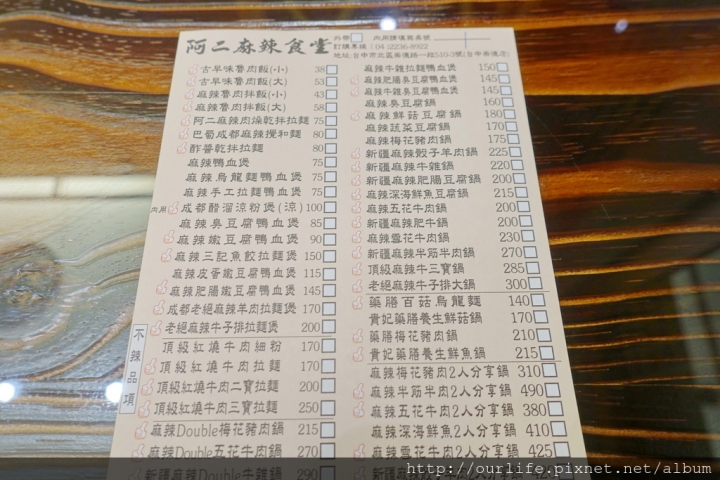 阿二麻辣食堂
外帶 內用請填寫桌號
訂購專線：(04)2236-8922
古早味魯肉飯(小) 38
古早味魯肉飯(大) 53
麻辣魯肉拌飯(小) 43
麻辣魯肉拌飯(大) 58
阿二麻辣肉燥乾拌拉麵 75
巴蜀成都麻辣攪和麵 80
酢醬乾拌拉麵 80
麻辣鴨血煲 75
麻辣烏龍麵鴨血煲 75
麻辣手工拉麵鴨血煲 75
內用 成都醋溜涼粉煲(涼) 100
麻辣臭豆腐鴨血煲 85
麻辣嫩豆腐鴨血煲 90
麻辣三記魚餃拉麵煲 150
麻辣皮蛋嫩豆腐鴨血煲 115
麻辣肥腸嫩豆腐鴨血煲 145
成都老媽麻辣羊肉拉麵煲 170
老媽麻辣牛子排拉麵煲 200
不辣品項
頂級紅燒牛肉細粉 170
頂級紅燒牛肉拉麵 170
頂級紅燒牛肉二寶拉麵 200
頂級紅燒牛肉三寶拉麵 250
麻辣Double梅花豬肉鍋 215
麻辣Double五花牛肉鍋 270
新疆麻辣Double牛雜鍋
麻辣牛雜拉麵鴨血煲 150
麻辣肥腸臭豆腐鴨血煲 145
麻辣牛雜臭豆腐鴨血煲 145
麻辣臭豆腐鍋 160
麻辣鮮菇豆腐鍋 180
麻辣蔬菜豆腐鍋 170
麻辣梅花豬肉鍋 175
新疆麻辣骰子羊肉鍋 225
新疆麻辣牛雜鍋 200
新疆麻辣肥腸豆腐鍋 200
麻辣深海鮮魚豆腐鍋 215
麻辣五花牛肉鍋 200
新疆麻辣肥牛鍋 200
麻辣雪花牛肉鍋 230
新疆麻辣半筋半肉鍋 270
頂級麻辣牛三寶鍋 285
老媽麻辣牛子排大鍋 300
藥膳百菇烏龍麵 140
貴妃藥膳養生鮮菇鍋 170
藥膳梅花豬肉鍋 210
貴妃藥膳養生鮮魚鍋 215
麻辣梅花豬肉2人分享鍋 310
麻辣半筋半肉2人分享鍋 490
麻辣五花牛肉2人分享鍋 380
麻辣深海鮮魚2人分享鍋 410
麻辣雪花牛肉2人分享鍋 425
http://ourlife.pixnet.net/album